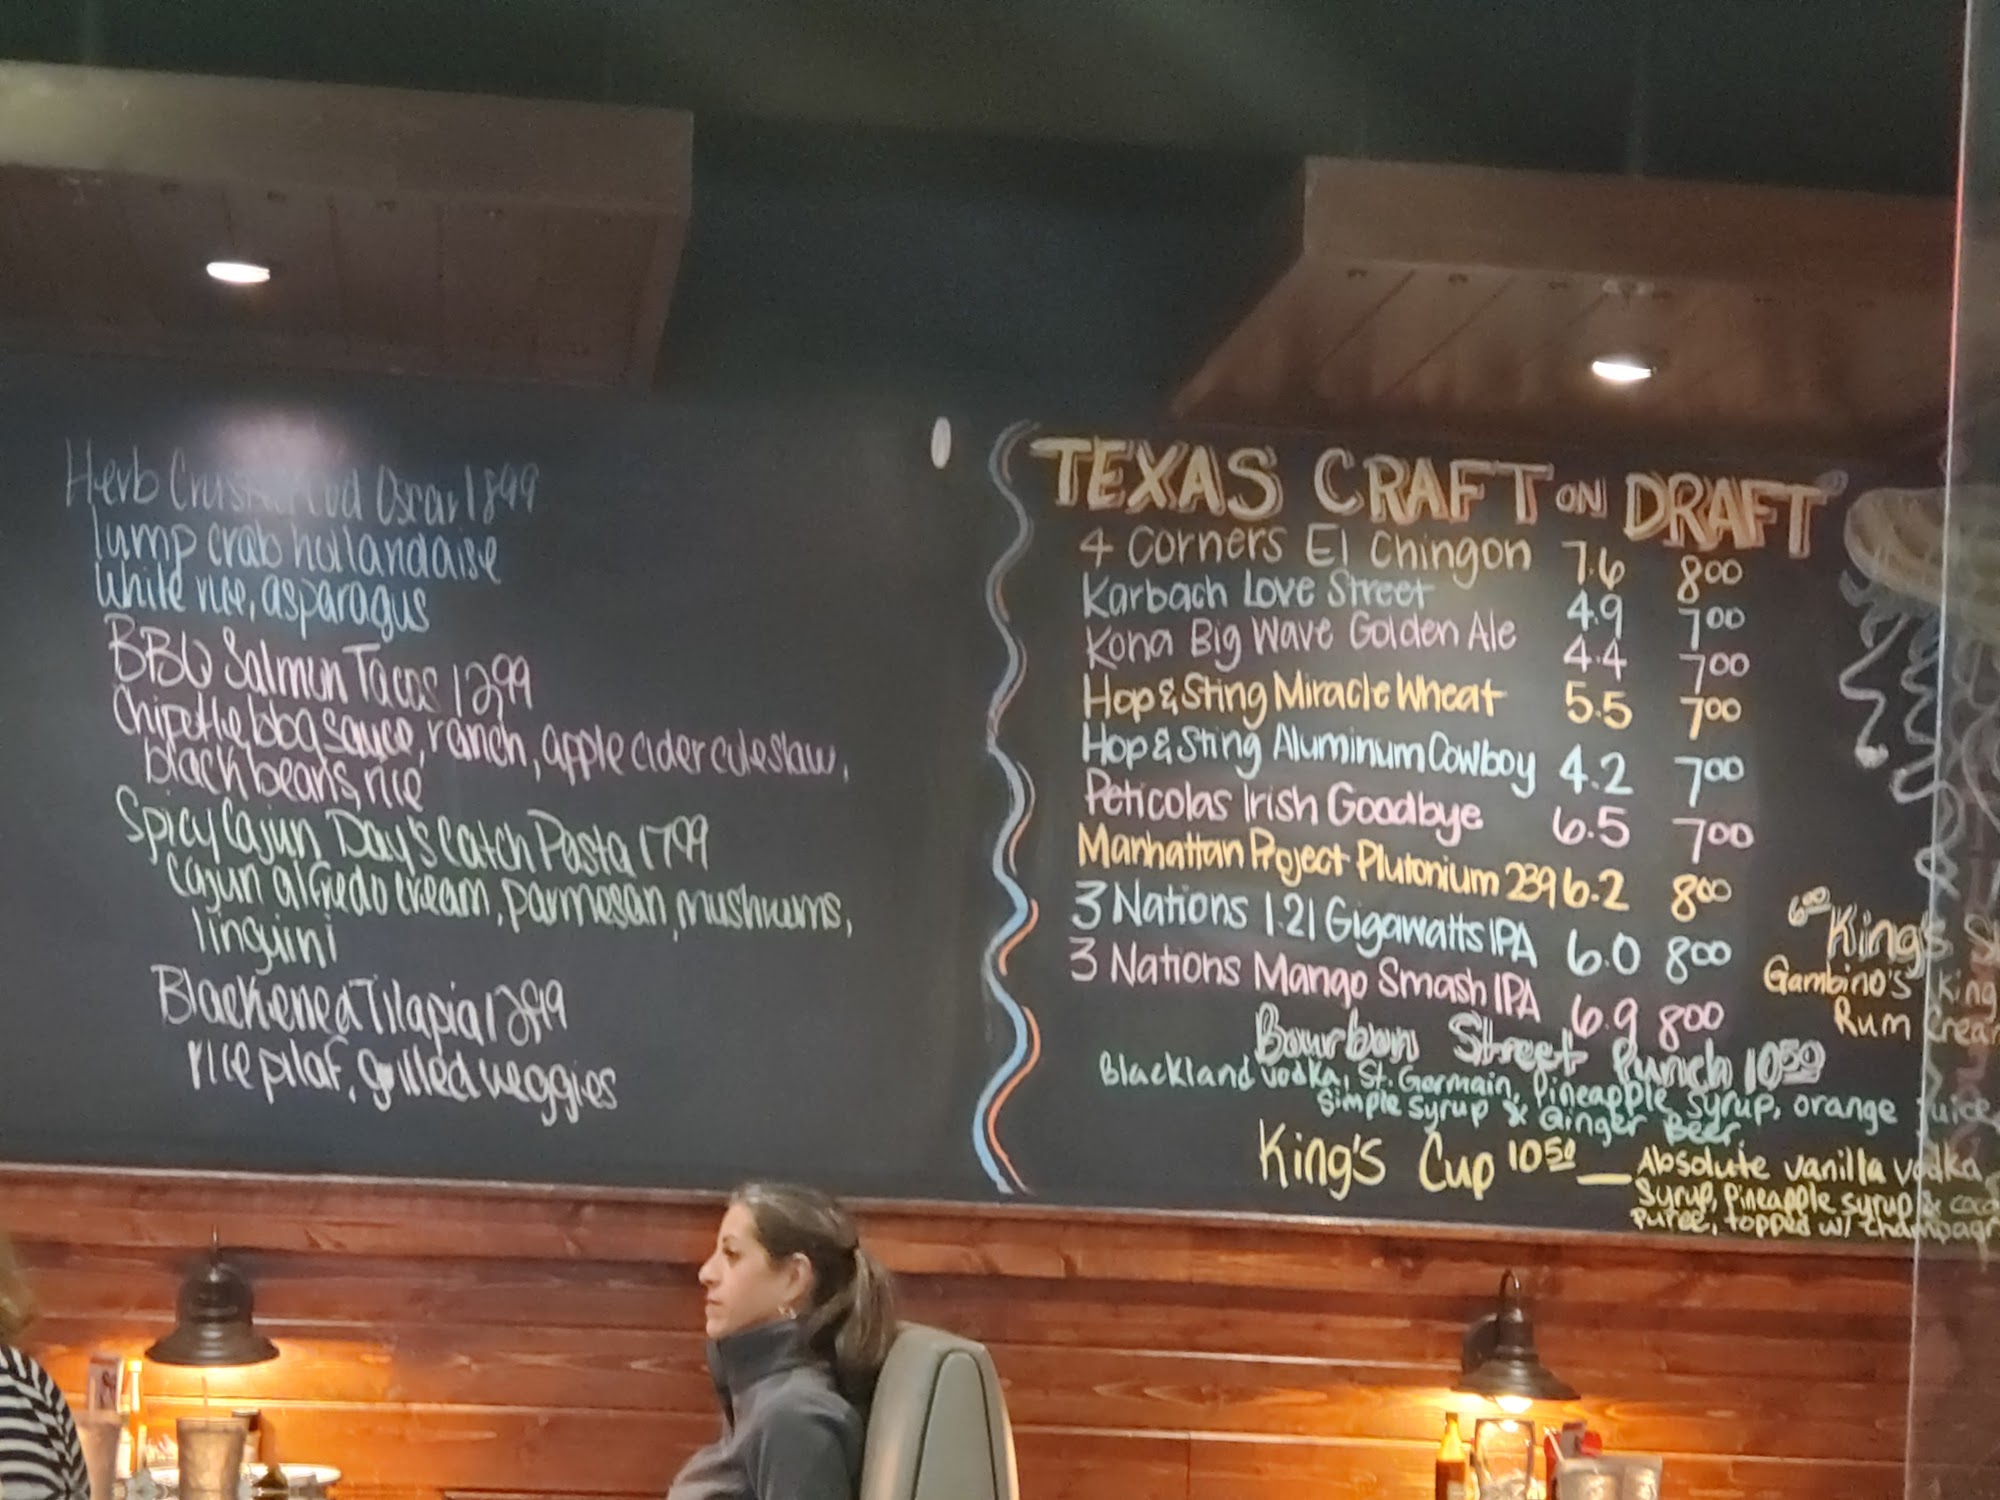 Herb Crusted Cod Oscar 18.99
lump crab hollandaise
white rice, asparagus
BBQ Salmon Tacos 12.99
Chipotle bbq sauce, ranch, apple cider coleslaw,
black beans, rice
Spicy Cajun Day's Catch Pasta 17.99
cajun alfredo cream, parmesan, mushrooms,
linguini
Blackened Tilapia
rice pilaf, grilled veggies
TEXAS CRAFT ON DRAFT
4 Corners El Chingon 7.6 8.00
Karbach Love Street 4.9 7.00
Kona Big Wave Golden Ale 4.4 7.00
Hop & Sting Miracle Wheat 5.5 7.00
Hop & Sting Aluminum Cowboy 4.2 7.00
Peticolas Irish Goodbye 6.5 7.00
Manhattan Project Plutonium 239 6.2 8.00
3 Nations 1.21 Gigawatts IPA 6.0 8.00
3 Nations Mango Smash IPA 6.9 8.00
Bourbon Street Punch 10.50
Blackland vodka, St. Germain, Pineapple syrup, orange juice
Simple syrup & Ginger Beer
King's Cup 10.50 — Absolute vanilla vodka,
syrup, Pineapple syrup &
puree, topped w/
6.00 King's
Gambino's King
Rum